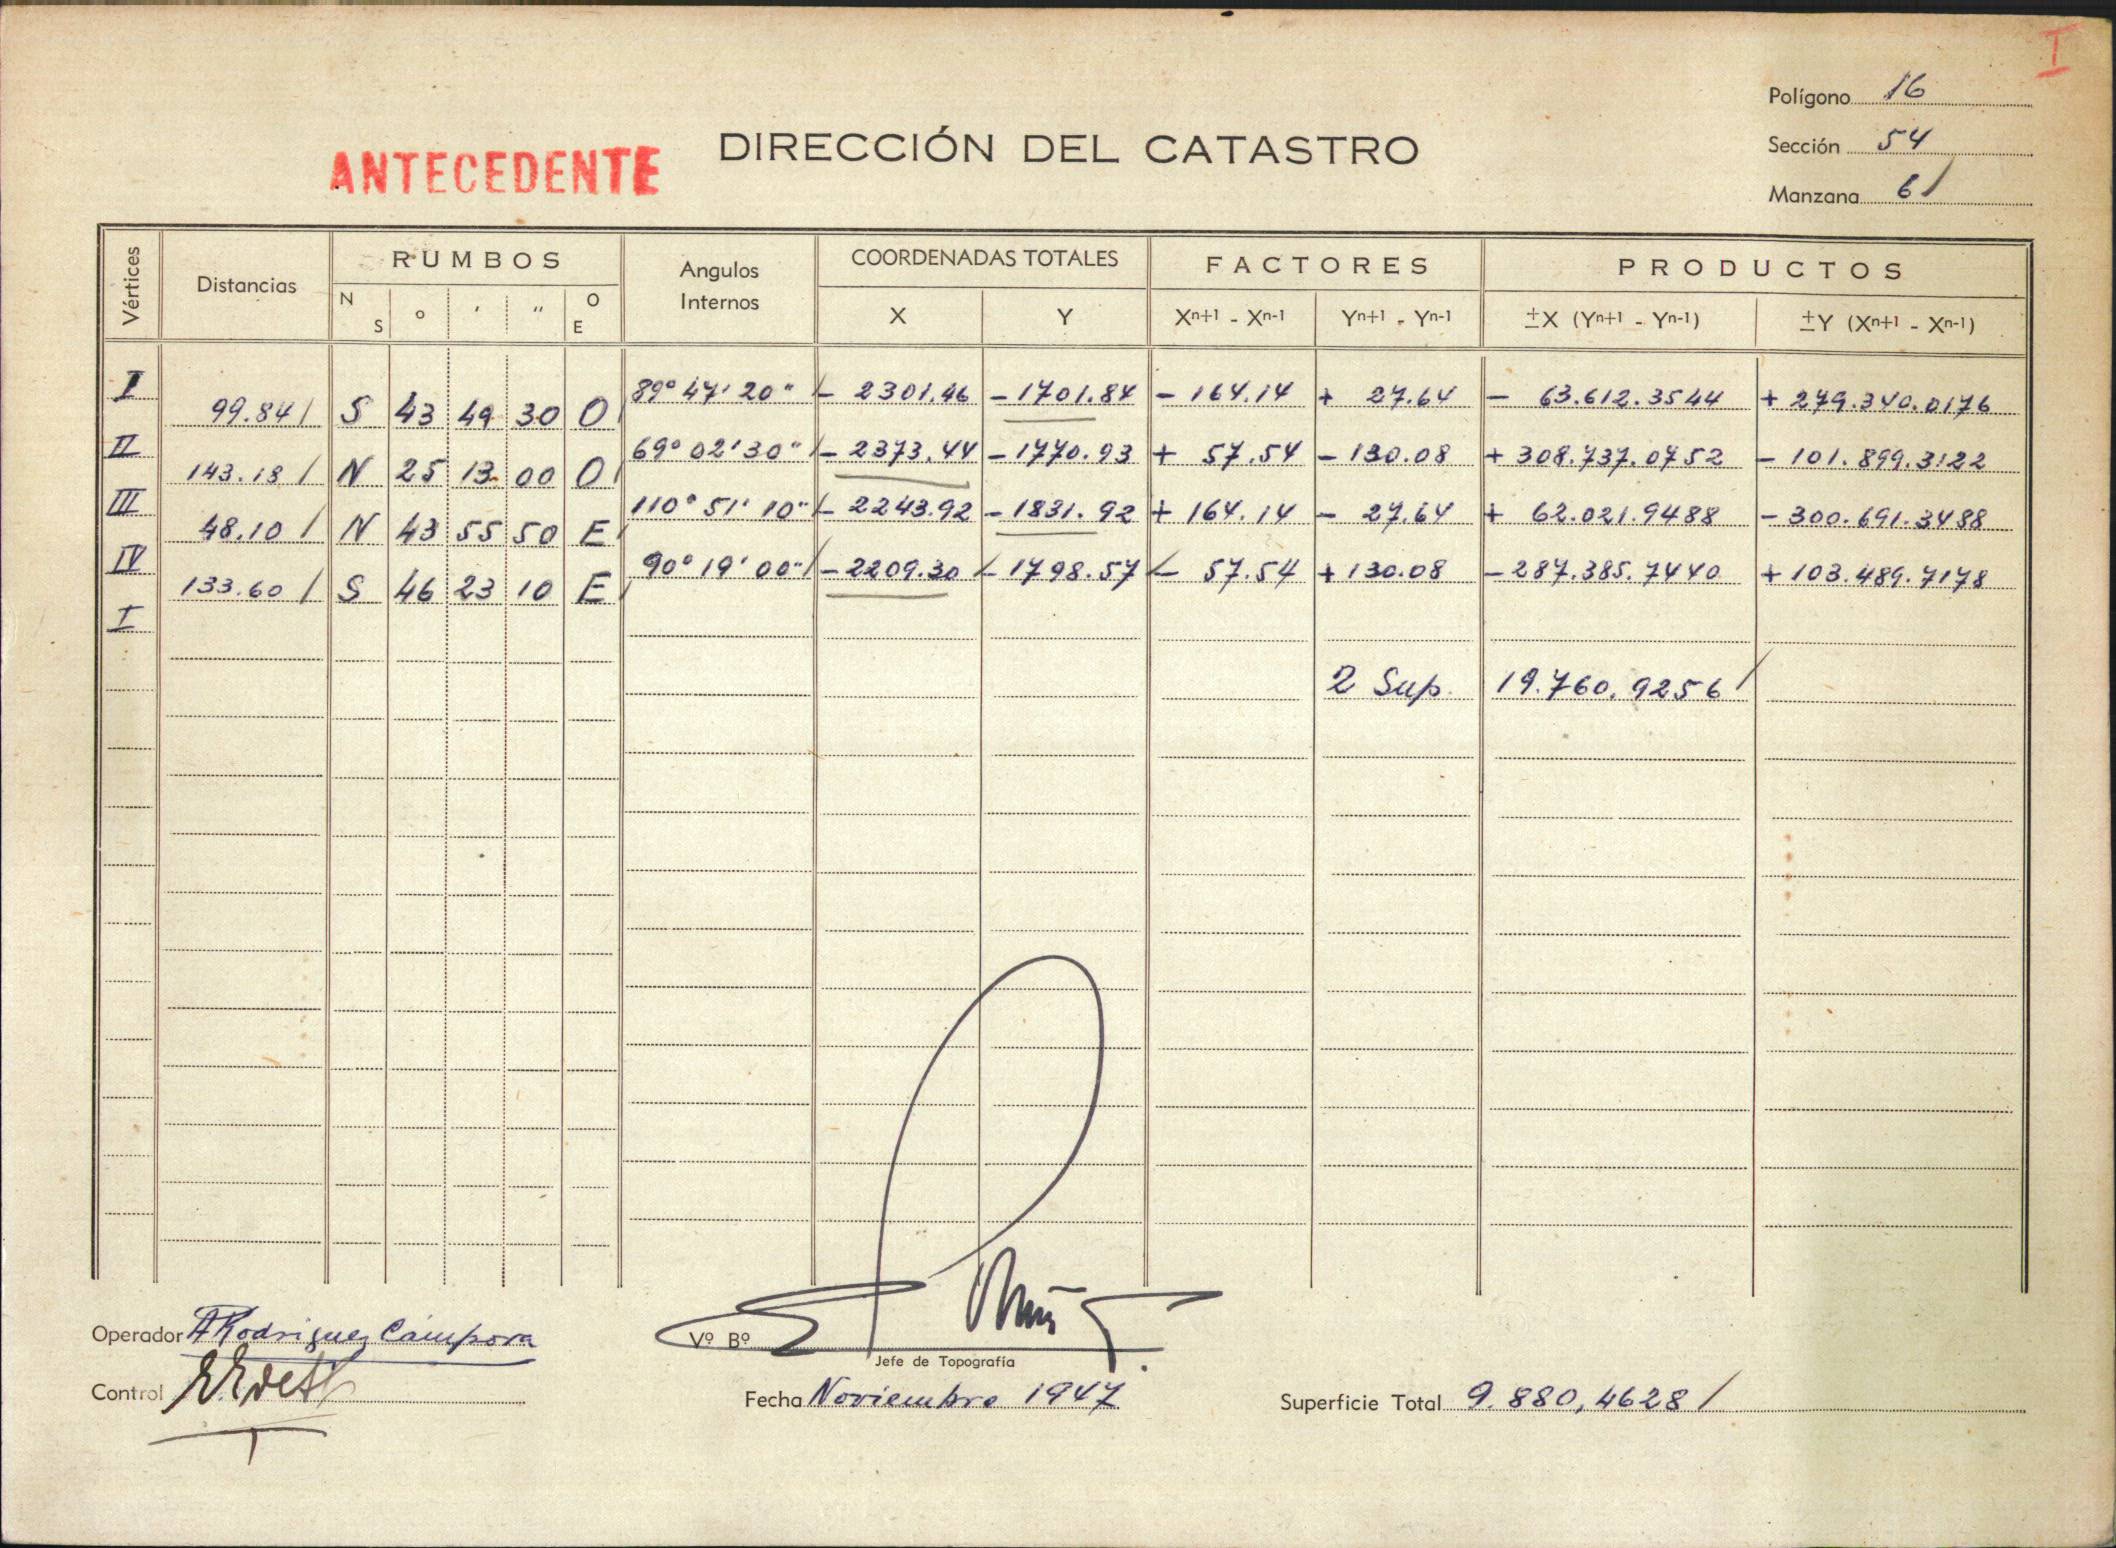 I
Polígono 16
Sección 54
Manzana 61
ANTECEDENTE
DIRECCIÓN DEL CATASTRO
Vértices Distancias RUMBOS Angulos Internos COORDENADAS TOTALES FACTORES PRODUCTOS
N S ° ' " O E X Y Xn+1 - Xn-1 Yn+1 - Yn-1 ±X (Yn+1 - Yn-1) ±Y (Xn+1 - Xn-1)
I 89° 47' 20" - 2301.46 - 1701.84 - 164.14 + 27.64 - 63.612.3544 + 279.340.0176
99.84 S 43 49 30 O
II 69° 02' 30" - 2373.44 - 1770.93 + 57.54 - 130.08 + 308.737.0752 - 101.899.3122
143.18 N 25 13 00 O
III 110° 51' 10" - 2243.92 - 1831.92 + 164.14 - 27.64 + 62.021.9488 - 300.691.3488
48.10 N 43 55 50 E
IV 90° 19' 00" - 2209.30 - 1798.57 - 57.54 + 130.08 - 287.385.7440 + 103.489.7178
133.60 S 46 23 10 E
I
2 Sup. 19.760.9256
Operador A Rodriguez Cámpora
Vº Bº
Jefe de Topografía
Control
Fecha Noviembre 1947
Superficie Total 9.880,4628